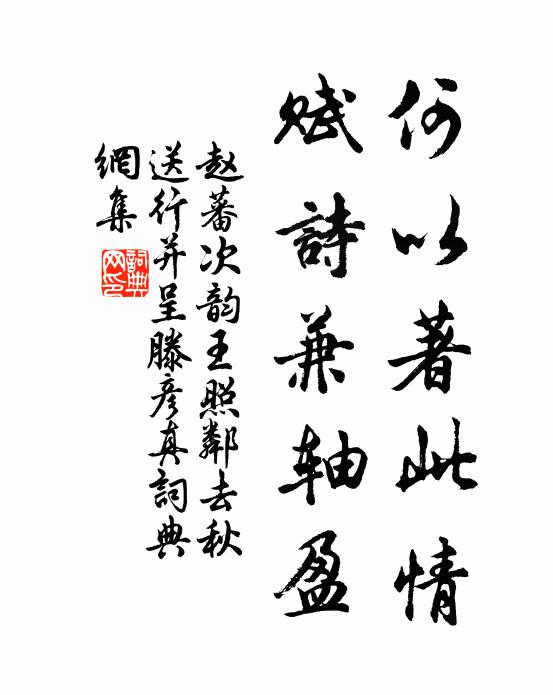 何以著此情
賦詩兼轴盈
赵蕃次韵王照鄰去秋
送行并呈滕彦真詞典
網集
詞典网印